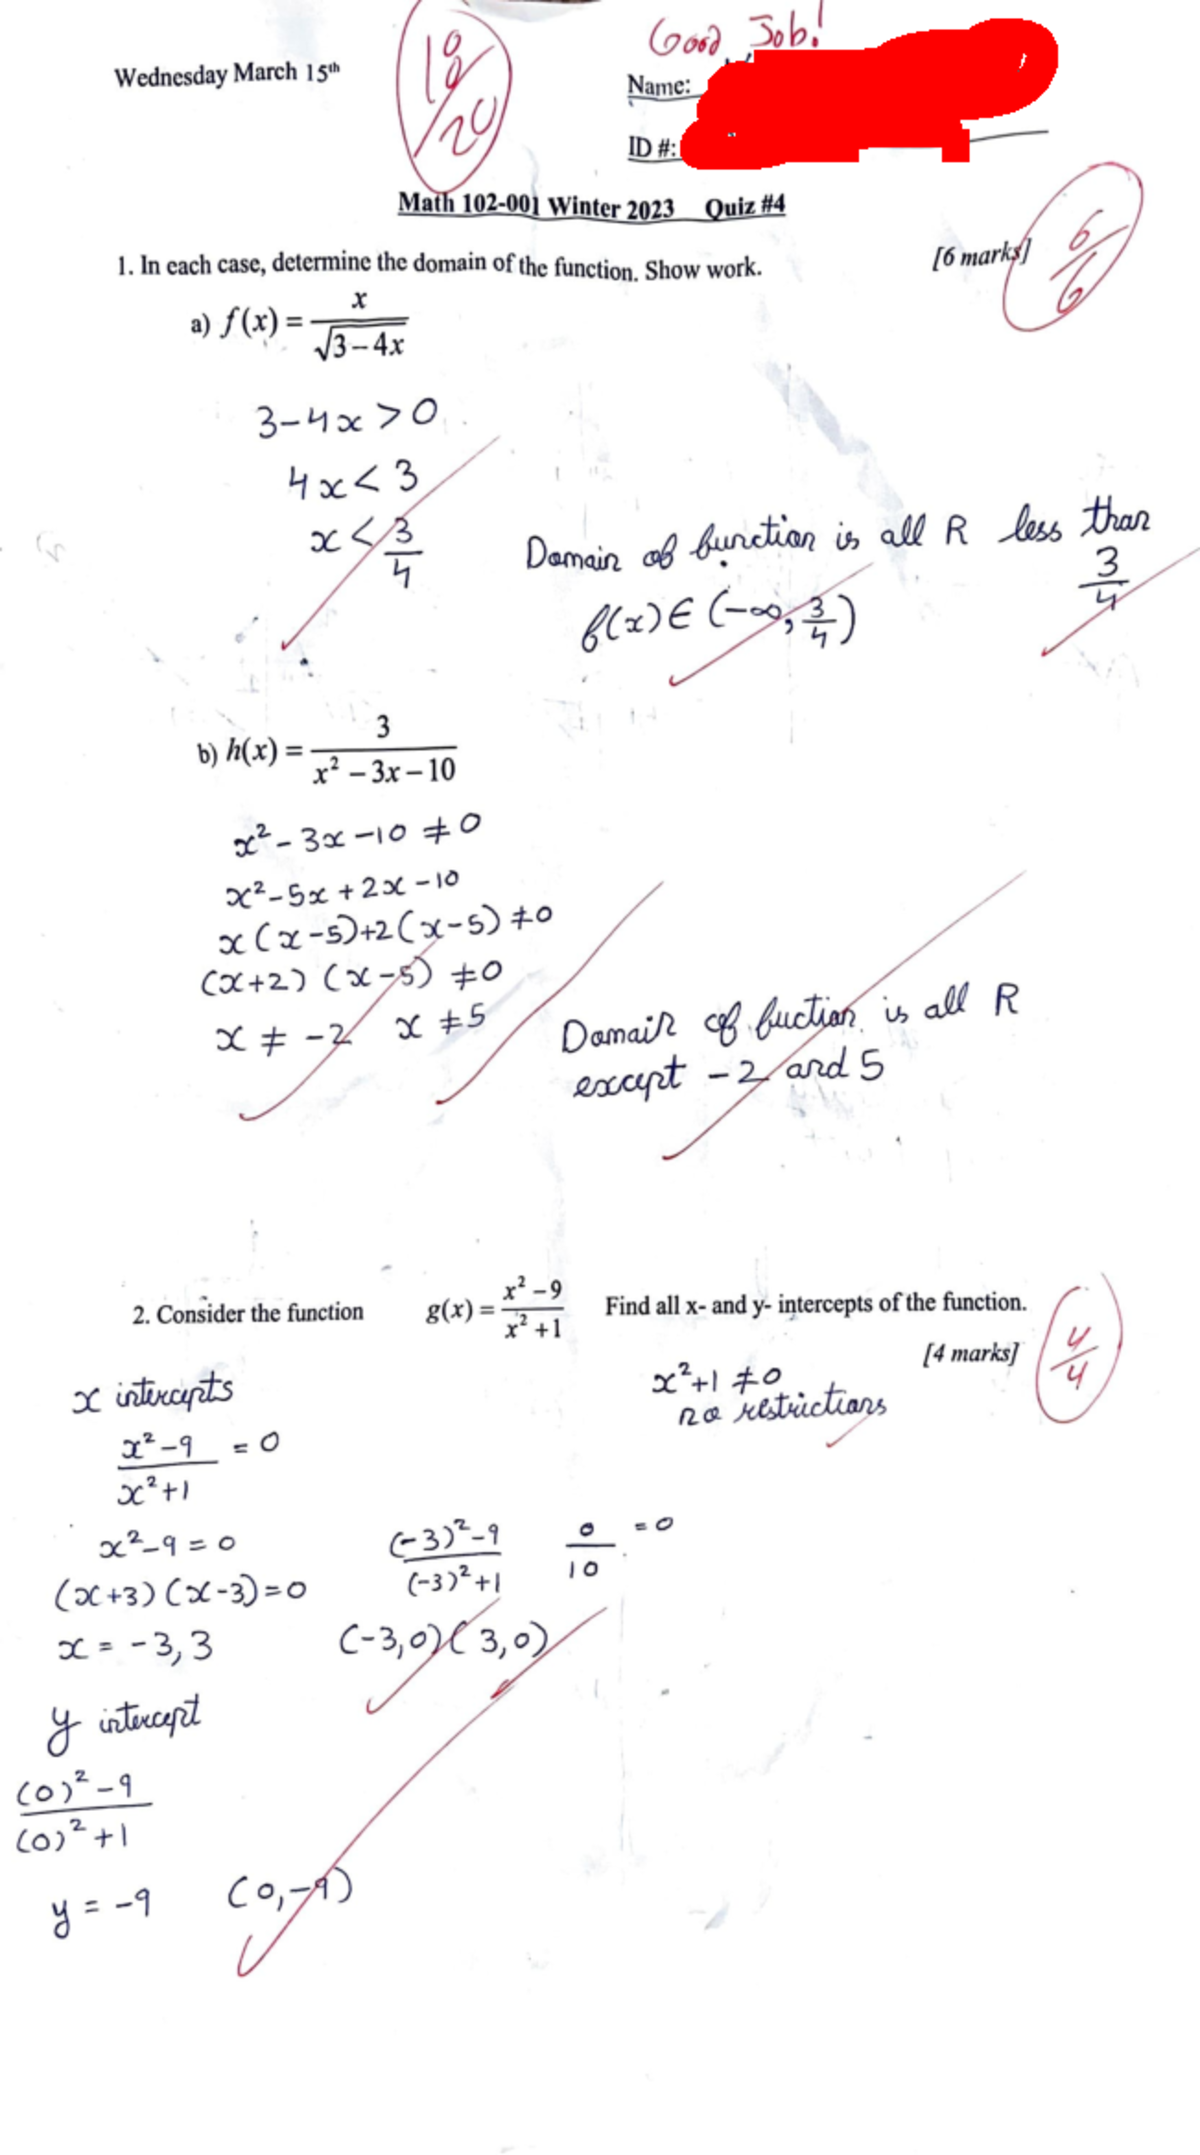 Good Job!
Wednesday March 15th
18/20
Name:
ID #:
Math 102-001 Winter 2023 Quiz #4
1. In each case, determine the domain of the function. Show work.
[6 marks]
6/6
a) f(x) = x/√(3-4x)
3-4x > 0
4x < 3
x < 3/4
Domain of function is all R less than 3/4
f(x) ∈ (-∞, 3/4)
b) h(x) = 3/(x² - 3x - 10)
x² - 3x - 10 ≠ 0
x² - 5x + 2x - 10
x(x-5)+2(x-5) ≠ 0
(x+2) (x-5) ≠ 0
x ≠ -2 x ≠ 5
Domain of fuction is all R
except -2 and 5
2. Consider the function g(x) = (x² - 9)/(x² + 1) Find all x- and y- intercepts of the function.
[4 marks]
4/4
x²+1 ≠ 0
no restrictions
x intercepts
(x²-9)/(x²+1) = 0
x²-9 = 0
(x+3)(x-3) = 0
x = -3, 3
((-3)²-9)/((-3)²+1) 0/10 = 0
(-3,0)(3,0)
y intercept
((0)²-9)/((0)²+1)
y = -9 (0,-9)